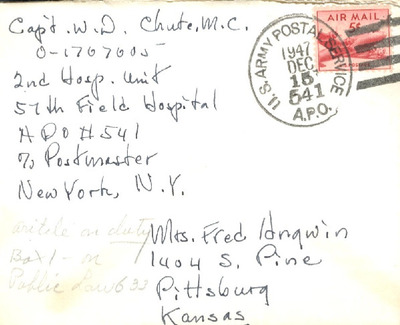 Capt. W. D. Chute, M.C.
O-1707005
2nd Hosp. Unit
57th Field Hospital
APO # 541
℅ Postmaster
New York, N.Y.
U.S. ARMY POSTAL SERVICE
1947
DEC
15
541
A.P.O.
AIR MAIL
5¢
on duty
Box 1 - on
Public Law 633
Mrs. Fred
1404 S. Pine
Pittsburg
Kansas